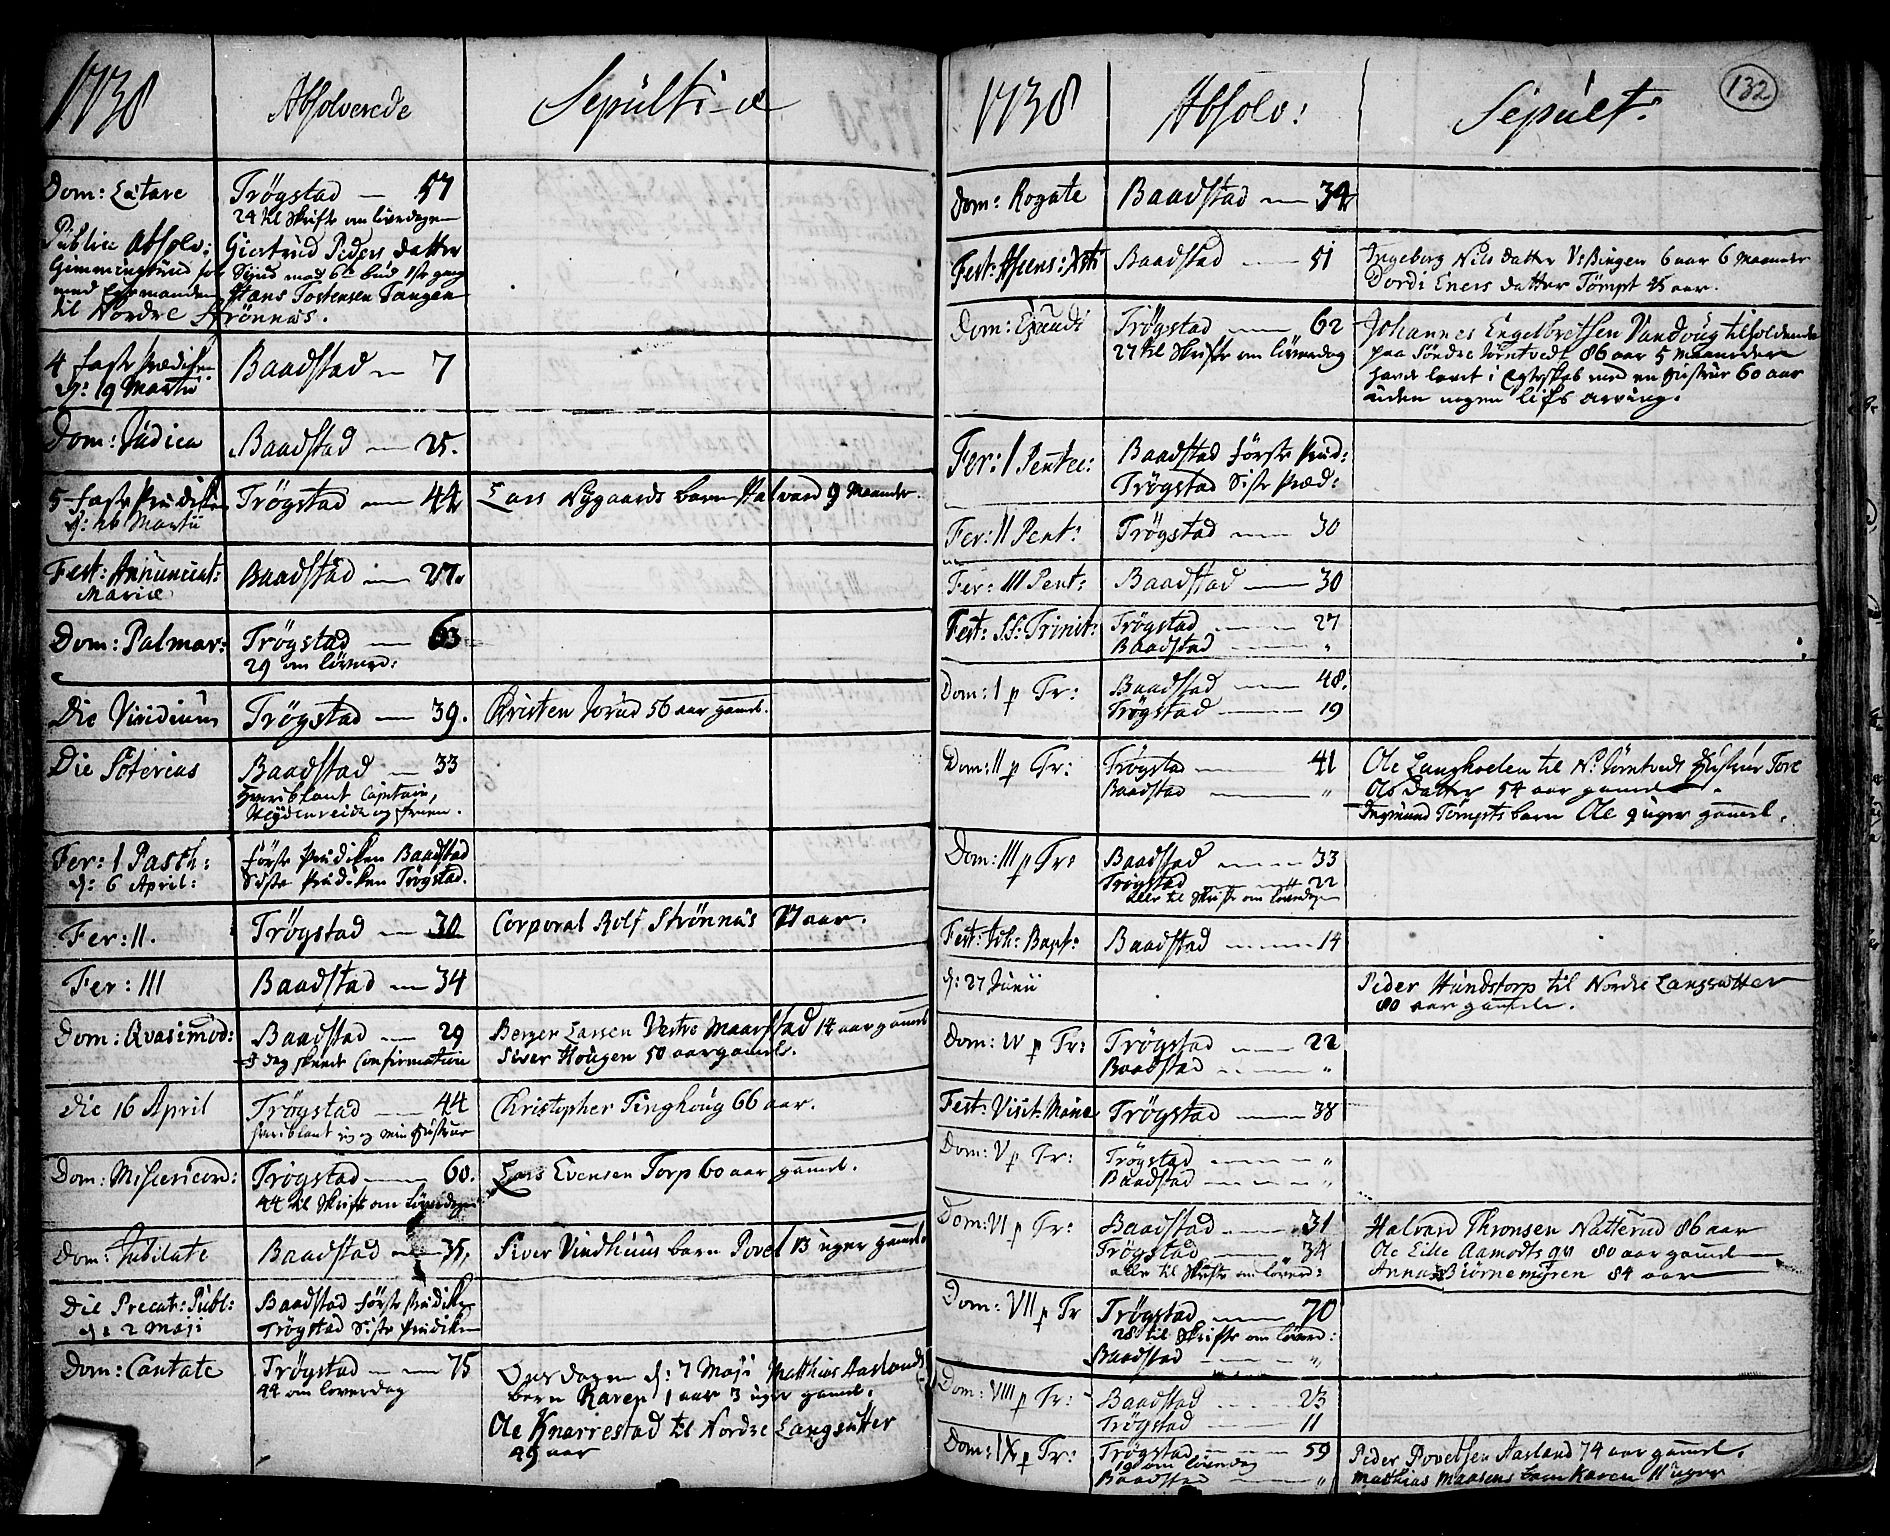 1738
Absolverede
Sepulti-æ
Dom: Lætare
Trøgstad — 57
24 til Skrifte om Løverdagen
Public Absolv:
Giertrud Peders datter
Gimmingsrud for
Synd mod 6te bud 1ste gang
med
Hans Tostensen Tangen
til Nordre Strønnæs.
4 faste Prædiken
d: 19 Martii
Baadstad — 7
Dom: Judica
Baadstad — 25.
5 faste Prædiken
d: 26 Martii
Trøgstad — 44
Lars Nygaards barn Halvard 9 Maaneder.
Fest: Annunciat:
Mariæ
Baadstad — 27.
Dom: Palmar:
Trøgstad — 63
29 om løverd:
Die Viridium
Trøgstad — 39.
Christen Jorud 56 aar gaml.
Die Soterias
Baadstad — 33
hveriblant Captain,
Heydenreich og fruen.
Fer: I Pasch:
d: 6 April:
første Prædiken Baadstad
Siste Prædiken Trøgstad.
Fer: II.
Trøgstad — 30
Corporal Rolf Strønnæs 77 aar.
Fer: III
Baadstad — 34
Dom: Qvasimod:
Baadstad — 29
I dag skeede Confirmation
Berger Larsen Vestre Maarstad 14 aar gaml
Siver Hougen 50 aar gaml.
Die 16 April
Trøgstad — 44
hveriblant ieg og min Hustrue
Christopher Tinghoug 66 aar.
Dom: Misericord:
Trøgstad — 60.
44 til Skrifte om Løverdagen
Lars Evensen Torp 60 aar gaml.
Dom: Jubilate
Baadstad — 35,
Siver Vindhuus barn Povel 13 uger gaml.
Die Precat: Publ:
d: 2 Maji
Baadstad første Prædiken
Trøgstad Siste Prædiken
Dom: Cantate
Trøgstad — 75
44 om loverdag
Onsdagen d: 7 Maji Matthias Aaslands
barn Karen 1 aar 3 uger gaml.
Ole Knarrestad til Nordre Langsætter
49 aar
1738
Absolv:
Sepult:
132
Dom: Rogate
Baadstad — 34
Fest: Ascens: Xsti
Baadstad — 51
Ingeborg Nils datter Vessingen 6 aar 6 Maaneder
Dordi Eners datter Tömpt 45 aar.
Dom: Exaudi
Trøgstad — 62
27 til Skrifte om Løverdag
Johannes Engelbretsen Vandoug tilholdende
paa Søndre Jørntvedt 86 aar 5 Maaneder
havde levet i Egteskab med en Hustrue 60 aar
uden nogen lifs arving.
Fer: I Pentec:
Baadstad første Præd:
Trøgstad Siste Præd:
Fer: II Pent:
Trøgstad — 30
Fer: III Pent:
Baadstad — 30
Fest: SS: Trinit:
Trøgstad — 27
Baadstad — "
Dom: I p Tr:
Baadstad — 48.
Trøgstad — 19
Dom: II p Tr:
Trøgstad — 41
Baadstad — "
Ole Langholen til N. Jørntvedt Hustrue Tore
Ols datter 54 aar gaml.
Ingmund Tømpts barn Ole 9 uger gaml.
Dom: III p Tr:
Baadstad — 33
Trøgstad — 22
alle til Skrifte om Løverdagen
Fest: Joh: Bapt:
Baadstad — 14
d: 27 Junii
Peder Hundstorp til Nordre Langsætter
80 aar gamle.
Dom: IV p Tr:
Trøgstad — 22
Baadstad — "
Fest: Visit: Mariæ
Trøgstad — 38
Dom: V p Tr:
Trøgstad — "
Baadstad — "
Dom: VI p Tr:
Baadstad — 31
Trøgstad — 34
alle til Skrifte om løverd:
Halvard Thronsen Natterud 86 aar
Ole Eilie Aamodts 80 aar gaml
Anna Biørnemyren 84 aar
Dom: VII p Tr
Trøgstad — 70
28 til Skrifte om løverd:
Baadstad — "
Dom: VIII p Tr:
Baadstad — 23
Trøgstad — 11
Dom: IX p Tr:
Trøgstad — 59
19 om løverdag
Baadstad — "
Peder Povelsen Aasland 74 aar gaml.
Matthias Maasens barn Karen 11 uger